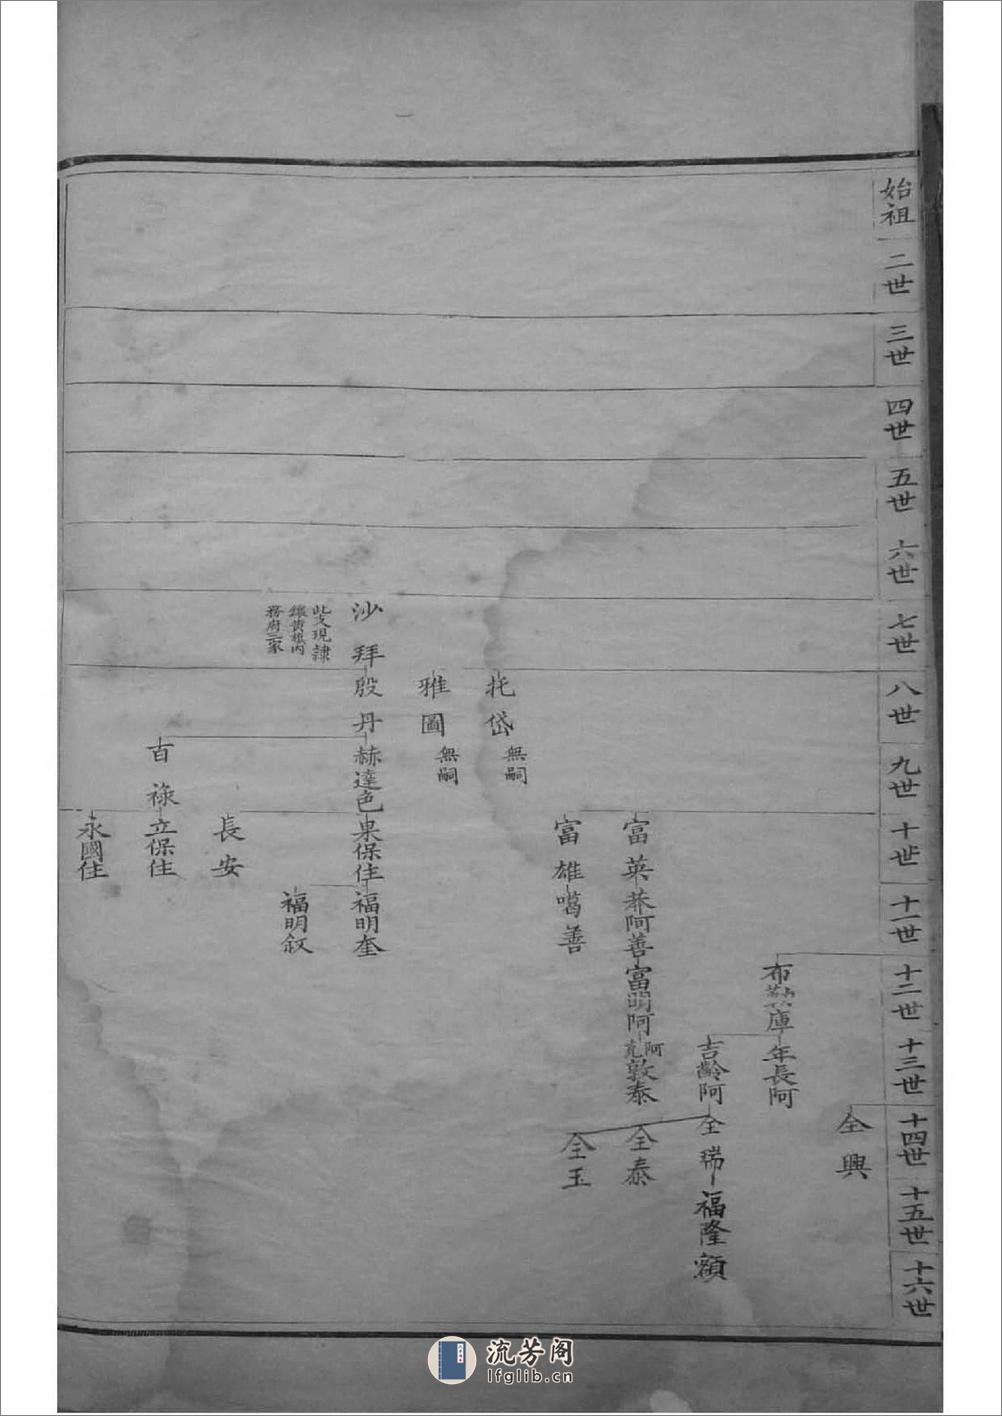 始祖
二世
三世
四世
五世
六世
七世
八世
九世
十世
十一世
十二世
十三世
十四世
十五世
十六世
全興
布勒庫
年長阿
吉齡阿
全瑞
福隆額
富英
莽阿善
富明阿
阿克敦泰
全泰
富雄
噶善
全玉
托岱
無嗣
雅圖
無嗣
沙拜
殷丹
赫達色
果保住
福明奎
此支現隸
鑲黃旗內
務府三家
福明叙
長安
百祿
立保住
永國住
流芳阁
lfglib.cn